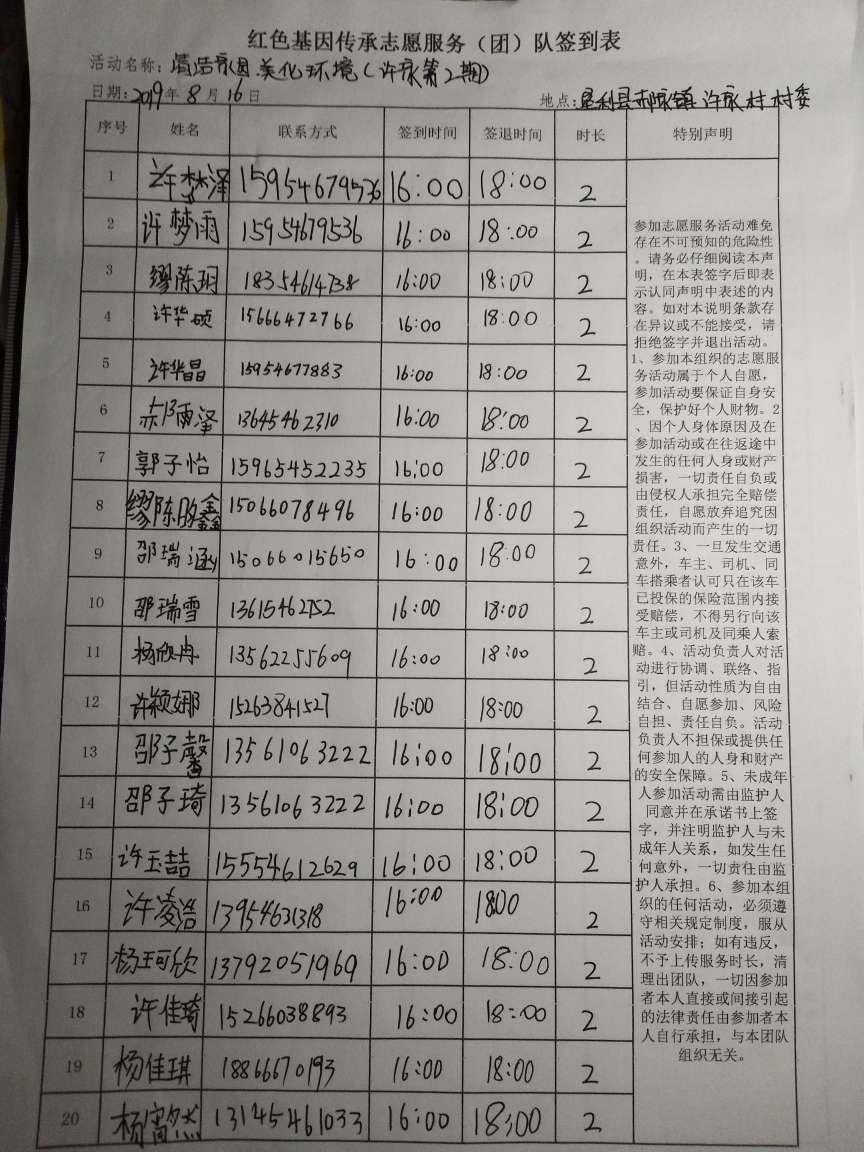 红色基因传承志愿服务（团）队签到表
活动名称：清洁家园 美化环境（许家第2期）
日期：2019年8月16日 地点：垦利县郝家镇许家村村委
序号 姓名 联系方式 签到时间 签退时间 时长 特别声明
1 许梦泽 15954679536 16:00 18:00 2
2 许梦雨 15954679536 16:00 18:00 2
3 缪陈玥 18354614738 16:00 18:00 2
4 许华硕 15666472766 16:00 18:00 2
5 许华晶 15954677883 16:00 18:00 2
6 郝雨泽 13645462310 16:00 18:00 2
7 郭子怡 15965452235 16:00 18:00 2
8 缪陈鑫 15066078496 16:00 18:00 2
9 邵瑞涵 15066015650 16:00 18:00 2
10 邵瑞雪 13615462752 16:00 18:00 2
11 杨欣冉 13562255609 16:00 18:00 2
12 许颖娜 15263841527 16:00 18:00 2
13 邵子馨 13561063222 16:00 18:00 2
14 邵子琦 13561063222 16:00 18:00 2
15 许玉喆 15554612629 16:00 18:00 2
16 许凌浩 13954631318 16:00 1800 2
17 杨珂欣 13792051969 16:00 18:00 2
18 许佳琦 15266038893 16:00 18:00 2
19 杨佳琪 18866670193 16:00 18:00 2
20 杨然 13145461033 16:00 18:00 2
参加志愿服务活动难免
存在不可预知的危险性
。请务必仔细阅读本声
明，在本表签字后即表
示认同声明中表述的内
容。如对本说明条款存
在异议或不能接受，请
拒绝签字并退出活动。
1、参加本组织的志愿服
务活动属于个人自愿，
参加活动要保证自身安
全，保护好个人财物。2
、因个人身体原因及在
参加活动或在往返途中
发生的任何人身或财产
损害，一切责任自负或
由侵权人承担完全赔偿
责任，自愿放弃追究因
组织活动而产生的一切
责任。3、一旦发生交通
意外，车主、司机、同
车搭乘者认可只在该车
已投保的保险范围内接
受赔偿，不得另行向该
车主或司机及同乘人索
赔。4、活动负责人对活
动进行协调、联络、指
引，但活动性质为自由
结合、自愿参加、风险
自担、责任自负。活动
负责人不担保或提供任
何参加人的人身和财产
的安全保障。5、未成年
人参加活动需由监护人
同意并在承诺书上签
字，并注明监护人与未
成年人关系，如发生任
何意外，一切责任由监
护人承担。6、参加本组
织的任何活动，必须遵
守相关规定制度，服从
活动安排；如有违反，
不予上传服务时长，清
理出团队，一切因参加
者本人直接或间接引起
的法律责任由参加者本
人自行承担，与本团队
组织无关。